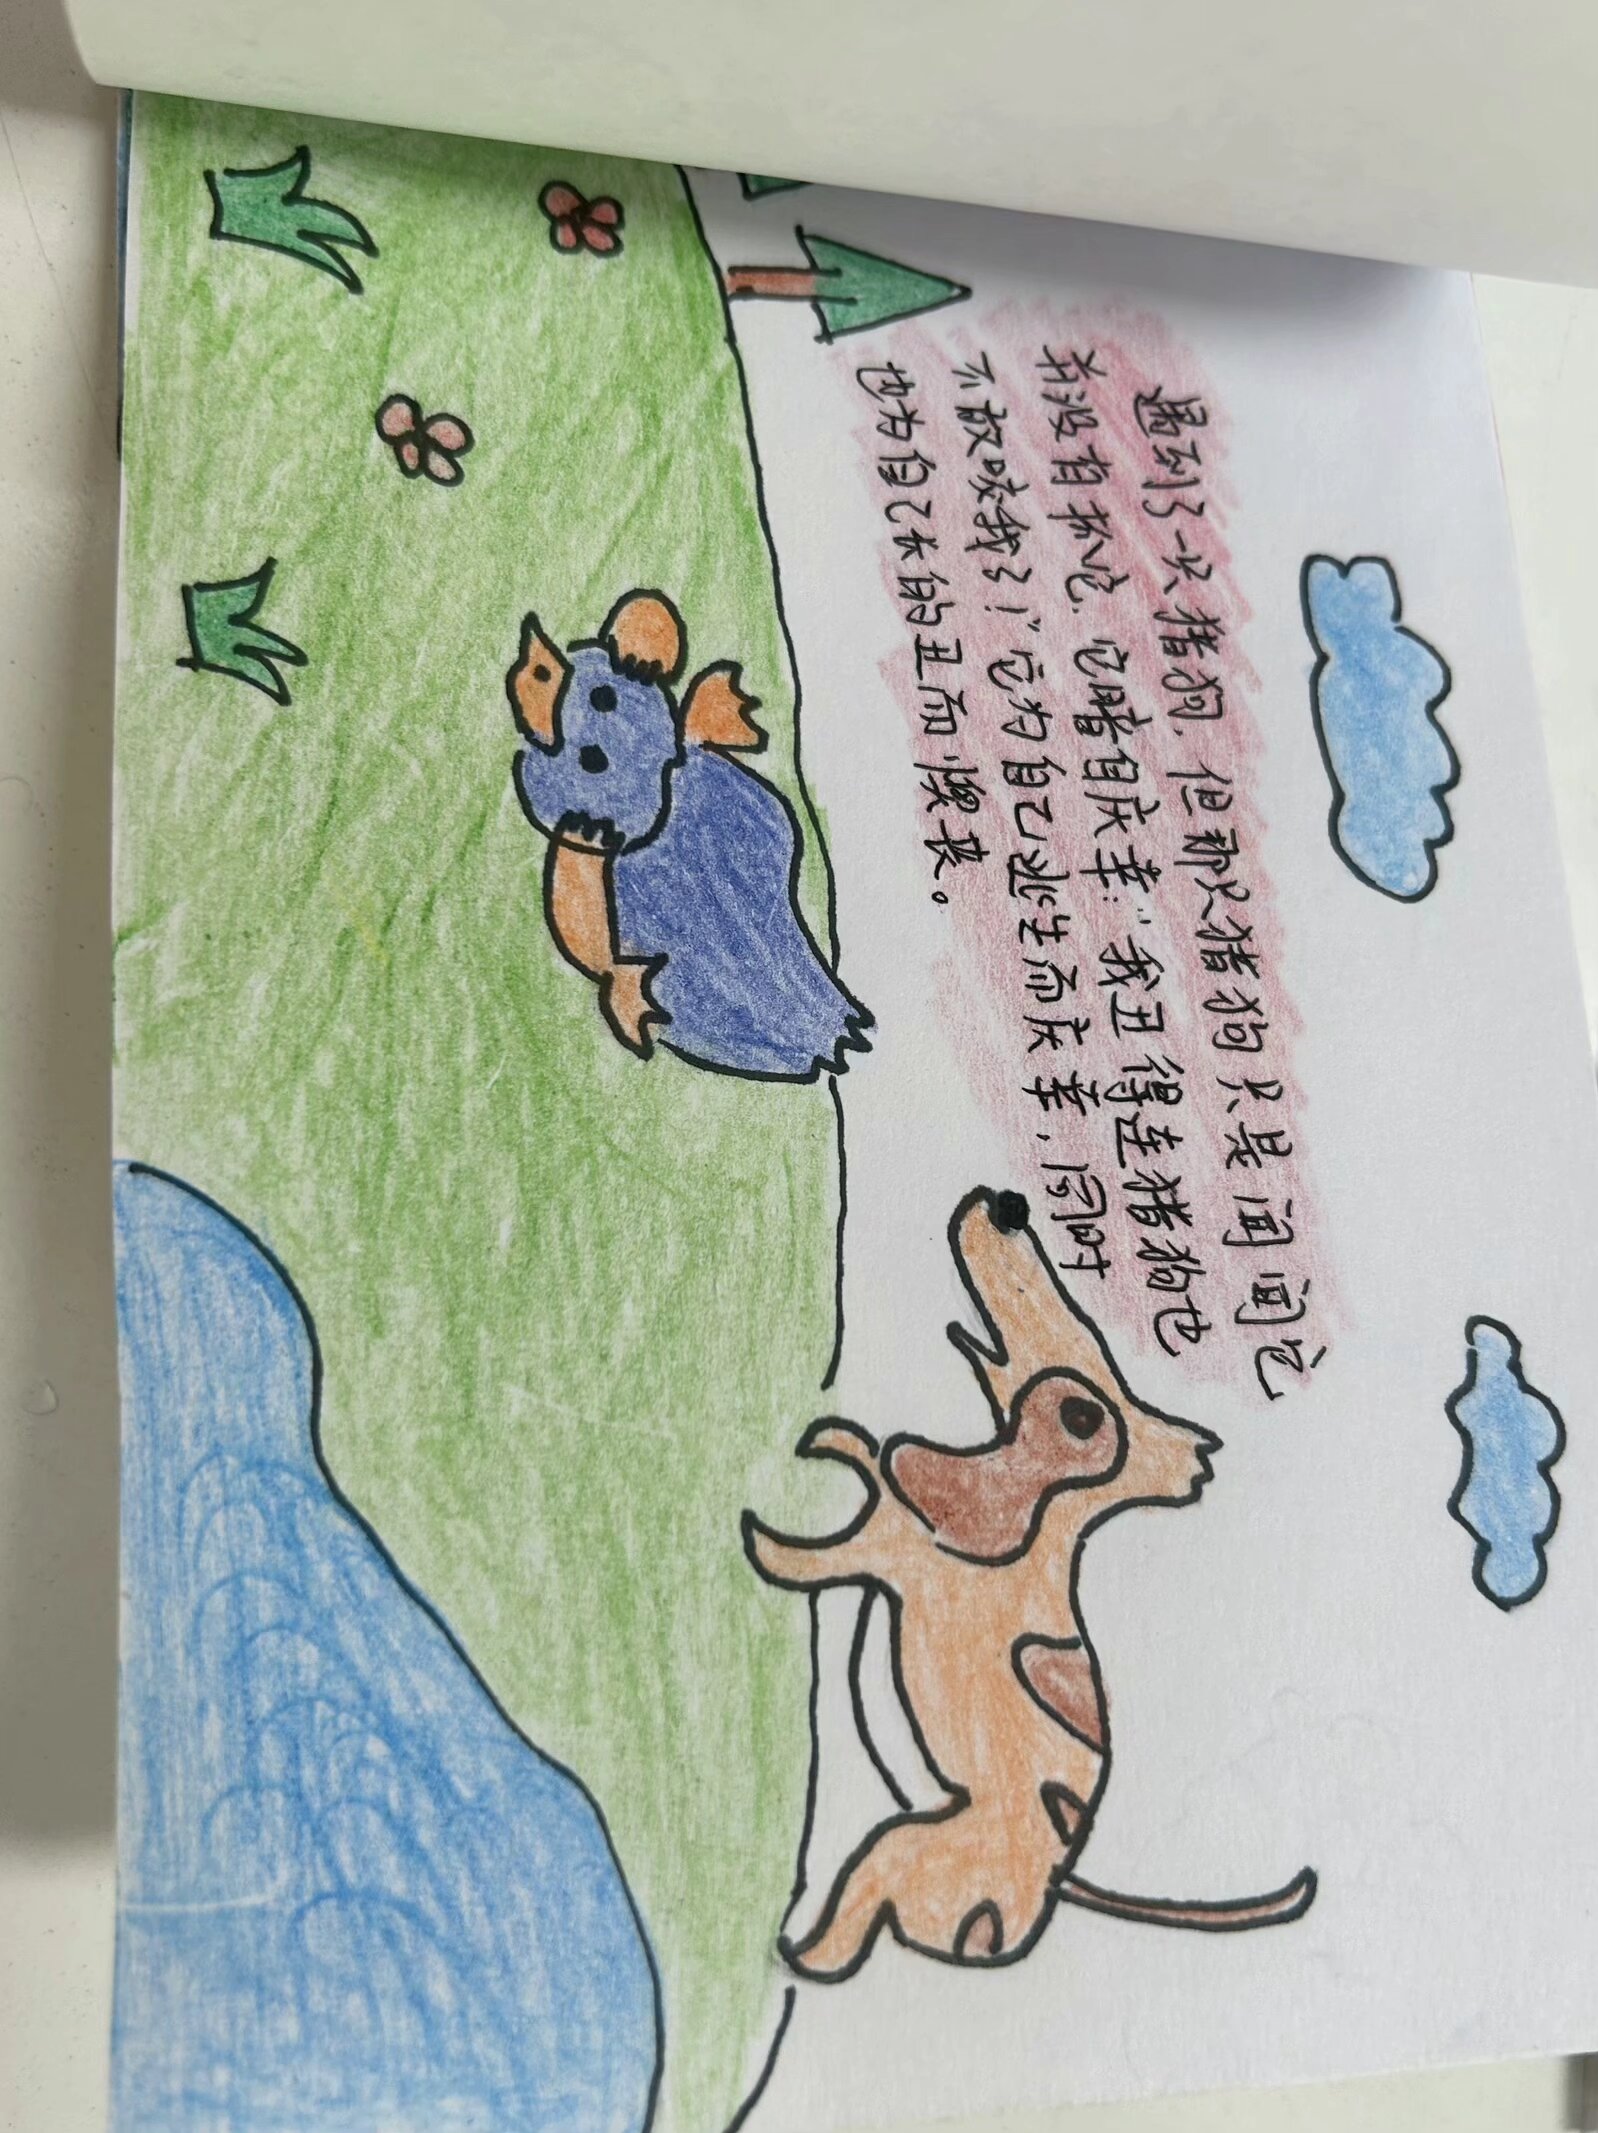 遇到了一只猎狗，但那只猎狗只是闻闻它
并没有抓它，它暗自庆幸：“我丑得连猎狗也
不敢咬我了！”它为自己逃生而庆幸，同时
也为自己长的丑而懊丧。